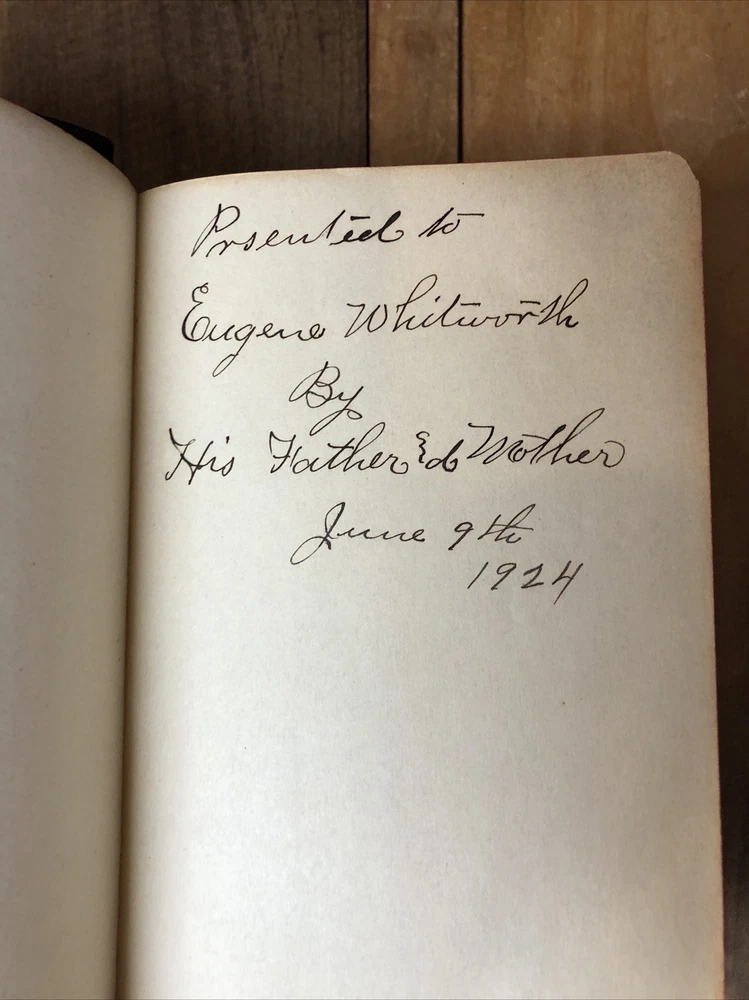 Prsented to
Eugene Whitworth
By
His Father &d Mother
June 9th
1924